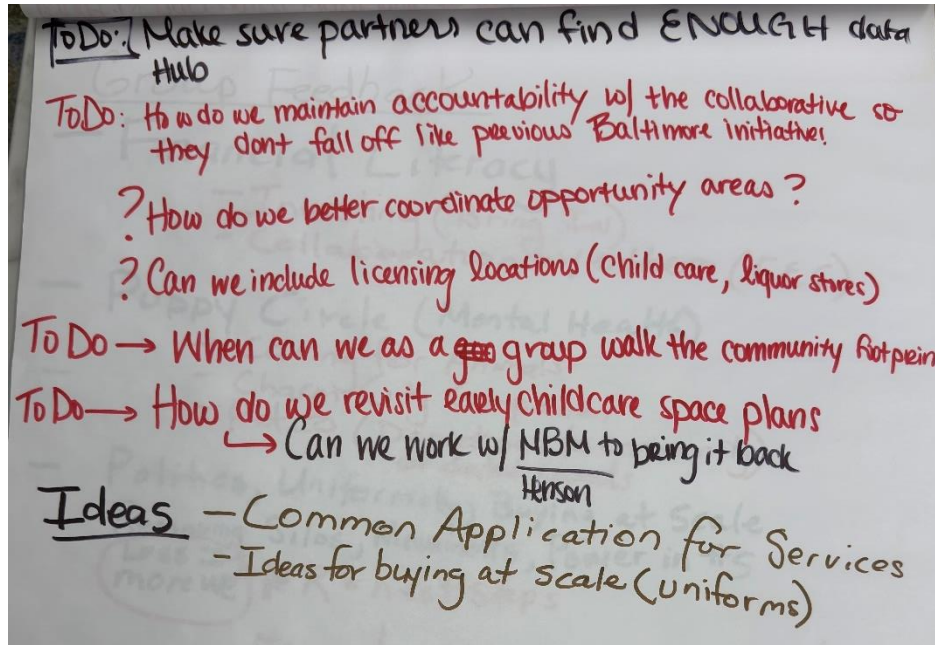 ToDo: Make sure partners can find ENOUGH data
Hub
ToDo: How do we maintain accountability w/ the collaborative so
they dont fall off like previous Baltimore initiatives
? How do we better coordinate opportunity areas?
? Can we include licensing locations (child care, liquor stores)
ToDo → When can we as a group walk the community footprin
ToDo → How do we revisit early childcare space plans
↳ Can we work w/ MBM to bring it back
Henson
Ideas - Common Application for Services
- Ideas for buying at scale (uniforms)